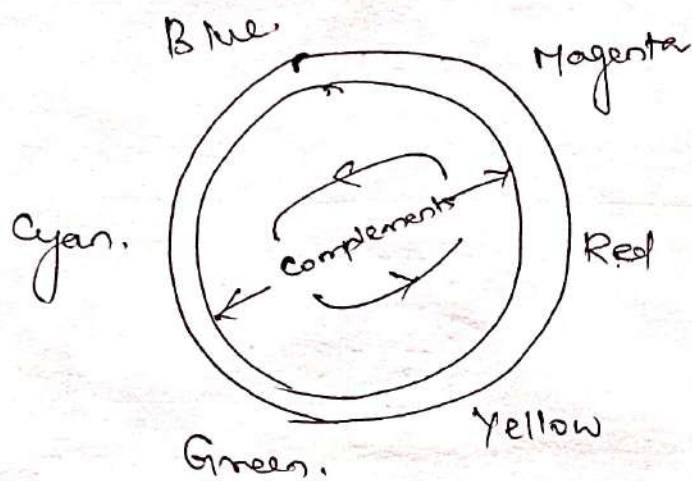 Blue.
Magenta
Cyan.
complements
Red
Yellow
Green.